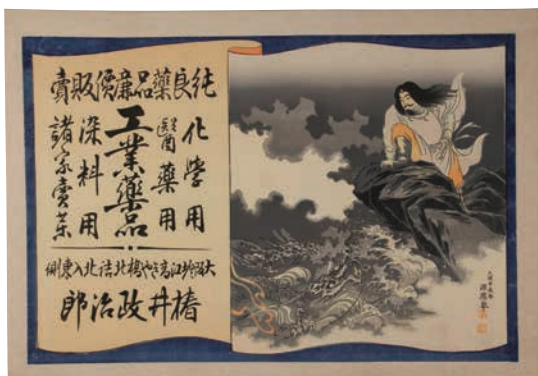 純良藥品廉價販賣
化學用
醫藥用
工業藥品
染料用
諸家賣薬
大阪堀江高きや橋北詰北入東側
椿井政治郎